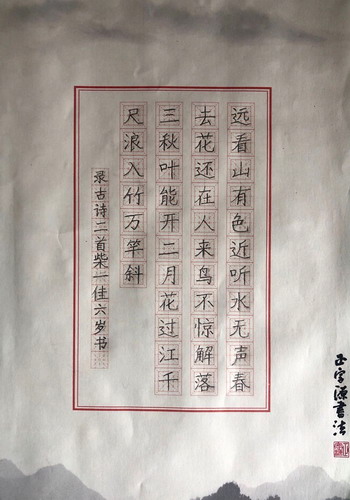 远看山有色近听水无声春
去花还在人来鸟不惊解落
三秋叶能开二月花过江千
尺浪入竹万竿斜
录古诗二首柴一佳六岁书
正字源书法